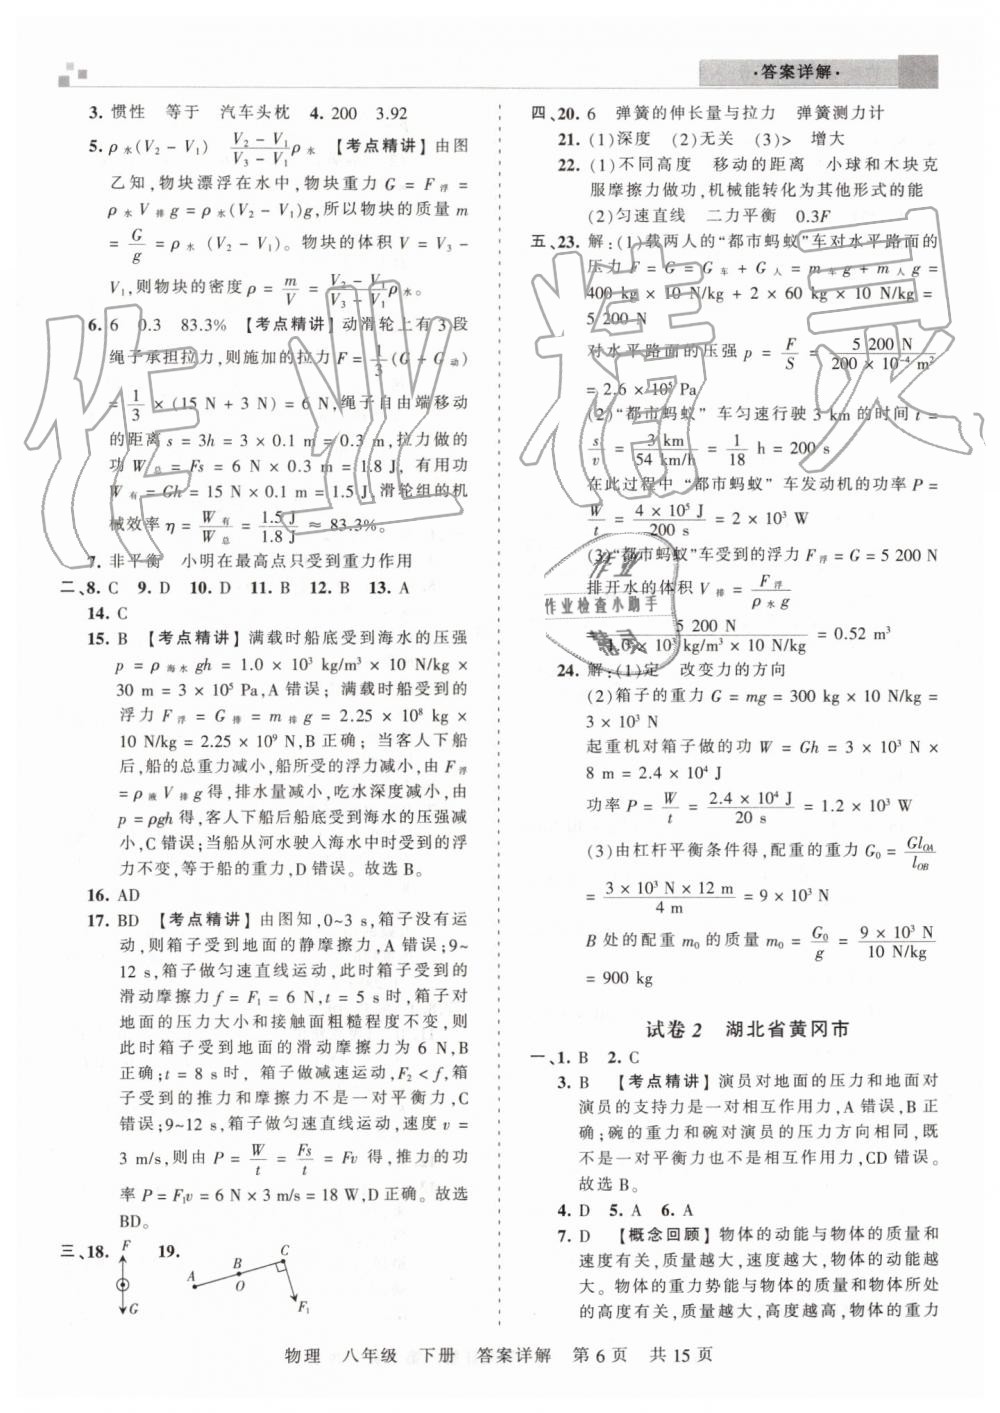 ·答案详解·
3. 惯性　等于　汽车头枕　4. 200　3.92
5. ρ水(V₂ − V₁)　(V₂ − V₁)/(V₃ − V₁) ρ水　【考点精讲】由图
乙知,物块漂浮在水中,物块重力 G = F浮 =
ρ水V排g = ρ水(V₂ − V₁)g,所以物块的质量 m
= G/g = ρ水(V₂ − V₁)。物块的体积 V = V₃ −
V₁,则物块的密度 ρ = m/V = (V₂ − V₁)/(V₃ − V₁) ρ水。
6. 6　0.3　83.3%　【考点精讲】动滑轮上有 3 段
绳子承担拉力,则施加的拉力 F = 1/3 (G + G动)
= 1/3 × (15 N + 3 N) = 6 N,绳子自由端移动
的距离 s = 3h = 3 × 0.1 m = 0.3 m,拉力做的
功 W总 = Fs = 6 N × 0.3 m = 1.8 J,有用功
W有 = Gh = 15 N × 0.1 m = 1.5 J,滑轮组的机
械效率 η = W有/W总 = 1.5 J/1.8 J ≈ 83.3%。
7. 非平衡　小明在最高点只受到重力作用
二、8. C　9. D　10. D　11. B　12. B　13. A
14. C
15. B　【考点精讲】满载时船底受到海水的压强
p = ρ海水gh = 1.0 × 10³ kg/m³ × 10 N/kg ×
30 m = 3 × 10⁵ Pa,A 错误；满载时船受到的
浮力 F浮 = G排 = m排g = 2.25 × 10⁸ kg ×
10 N/kg = 2.25 × 10⁹ N,B 正确；当客人下船
后,船的总重力减小,船所受的浮力减小,由 F浮
= ρ液V排g 得,排水量减小,吃水深度减小,由
p = ρgh 得,客人下船后船底受到海水的压强减
小,C 错误；当船从河水驶入海水中时受到的浮
力不变,等于船的重力,D 错误。故选 B。
16. AD
17. BD　【考点精讲】由图知,0~3 s,箱子没有运
动,则箱子受到地面的静摩擦力,A 错误;9~
12 s,箱子做匀速直线运动,此时箱子受到的
滑动摩擦力 f = F₁ = 6 N,t = 5 s 时,箱子对
地面的压力大小和接触面粗糙程度不变,则此
时箱子受到地面的滑动摩擦力为 6 N,B
正确;t = 8 s 时,箱子做减速运动,F₂ < f,箱子
受到的推力和摩擦力不是一对平衡力,C
错误;9~12 s,箱子做匀速直线运动,速度 v =
3 m/s,则由 P = W/t = Fs/t = Fv 得,推力的功
率 P = F₁v = 6 N × 3 m/s = 18 W,D 正确。故选
BD。
三、18. F G　19. A B O C F₁
四、20. 6　弹簧的伸长量与拉力　弹簧测力计
21. (1)深度　(2)无关　(3)>　增大
22. (1)不同高度　移动的距离　小球和木块克
服摩擦力做功,机械能转化为其他形式的能
(2)匀速直线　二力平衡　0.3F
五、23. 解:(1)载两人的“都市蚂蚁”车对水平路面的
压力 F = G = G车 + G人 = m车g + m人g =
400 kg × 10 N/kg + 2 × 60 kg × 10 N/kg =
5 200 N
对水平路面的压强 p = F/S = 5 200 N/(200 × 10⁻⁴ m²)
= 2.6 × 10⁵ Pa
(2)“都市蚂蚁”车匀速行驶 3 km 的时间 t =
s/v = 3 km/(54 km/h) = 1/18 h = 200 s
在此过程中“都市蚂蚁”车发动机的功率 P =
W/t = 4 × 10⁵ J/200 s = 2 × 10³ W
(3)“都市蚂蚁”车受到的浮力 F浮 = G = 5 200 N
排开水的体积 V排 = F浮/(ρ水g)
= 5 200 N/(1.0 × 10³ kg/m³ × 10 N/kg) = 0.52 m³
24. 解:(1)定　改变力的方向
(2)箱子的重力 G = mg = 300 kg × 10 N/kg =
3 × 10³ N
起重机对箱子做的功 W = Gh = 3 × 10³ N ×
8 m = 2.4 × 10⁴ J
功率 P = W/t = 2.4 × 10⁴ J/20 s = 1.2 × 10³ W
(3)由杠杆平衡条件得,配重的重力 G₀ = GlOA/lOB
= (3 × 10³ N × 12 m)/4 m = 9 × 10³ N
B 处的配重 m₀ 的质量 m₀ = G₀/g = 9 × 10³ N/(10 N/kg)
= 900 kg
试卷 2　湖北省黄冈市
一、1. B　2. C
3. B　【考点精讲】演员对地面的压力和地面对
演员的支持力是一对相互作用力,A 错误,B 正
确;碗的重力和碗对演员的压力方向相同,既
不是一对平衡力也不是相互作用力,CD 错误。
故选 B。
4. D　5. A　6. A
7. D　【概念回顾】物体的动能与物体的质量和
速度有关,质量越大,速度越大,物体的动能越
大。物体的重力势能与物体的质量和物体所处
的高度有关,质量越大,高度越高,物体的重力
物理　八年级　下册　答案详解　第 6 页　共 15 页
作业精灵
作业
作业检查小助手
精灵